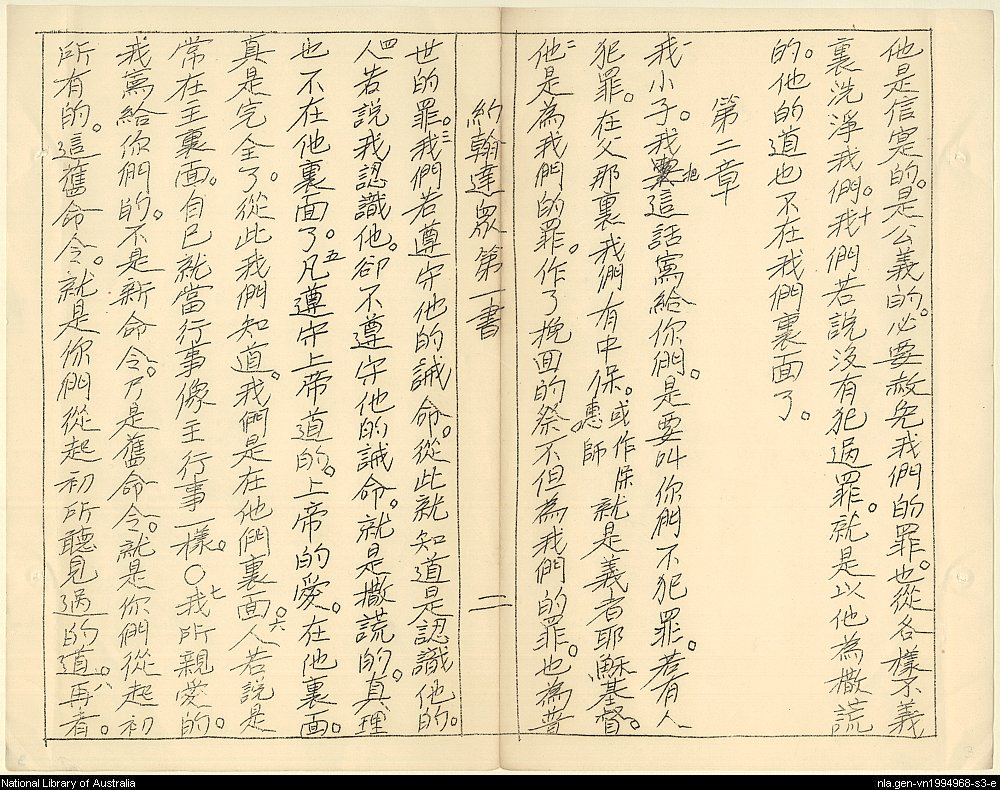 他是信寔的。是公義的。必要赦免我們的罪。也從各樣不義
裏洗淨我們。十我們若說沒有犯過罪。就是以他為撒謊
的。他的道也不在我們裏面了。
第二章
一我小子。我把這話寫給你們。是要叫你們不犯罪。若有人
犯罪。在父那裏我們有中保。或作保惠師就是義者耶穌基督。
二他是為我們的罪。作了挽回的祭。不但為我們的罪。也為普
約翰達眾第一書 二
世的罪。三我們若遵守他的誡命。從此就知道是認識他的。
四人若説我認識他。卻不遵守他的誡命。就是撒謊的。真理
也不在他裏面了。五凡遵守上帝道的。上帝的愛。在他裏面。
真是完全了。從此我們知道。我們是在他們裏面。六人若説是
常在主裏面。自己就當行事像主行事一樣。〇七我所親愛的。
我寫給你們的。不是新命令。乃是舊命令。就是你們從起初
所有的。這舊命令。就是你們從起初所聽見過的道。八再者。
National Library of Australia
nla.gen-vn1994968-s3-e